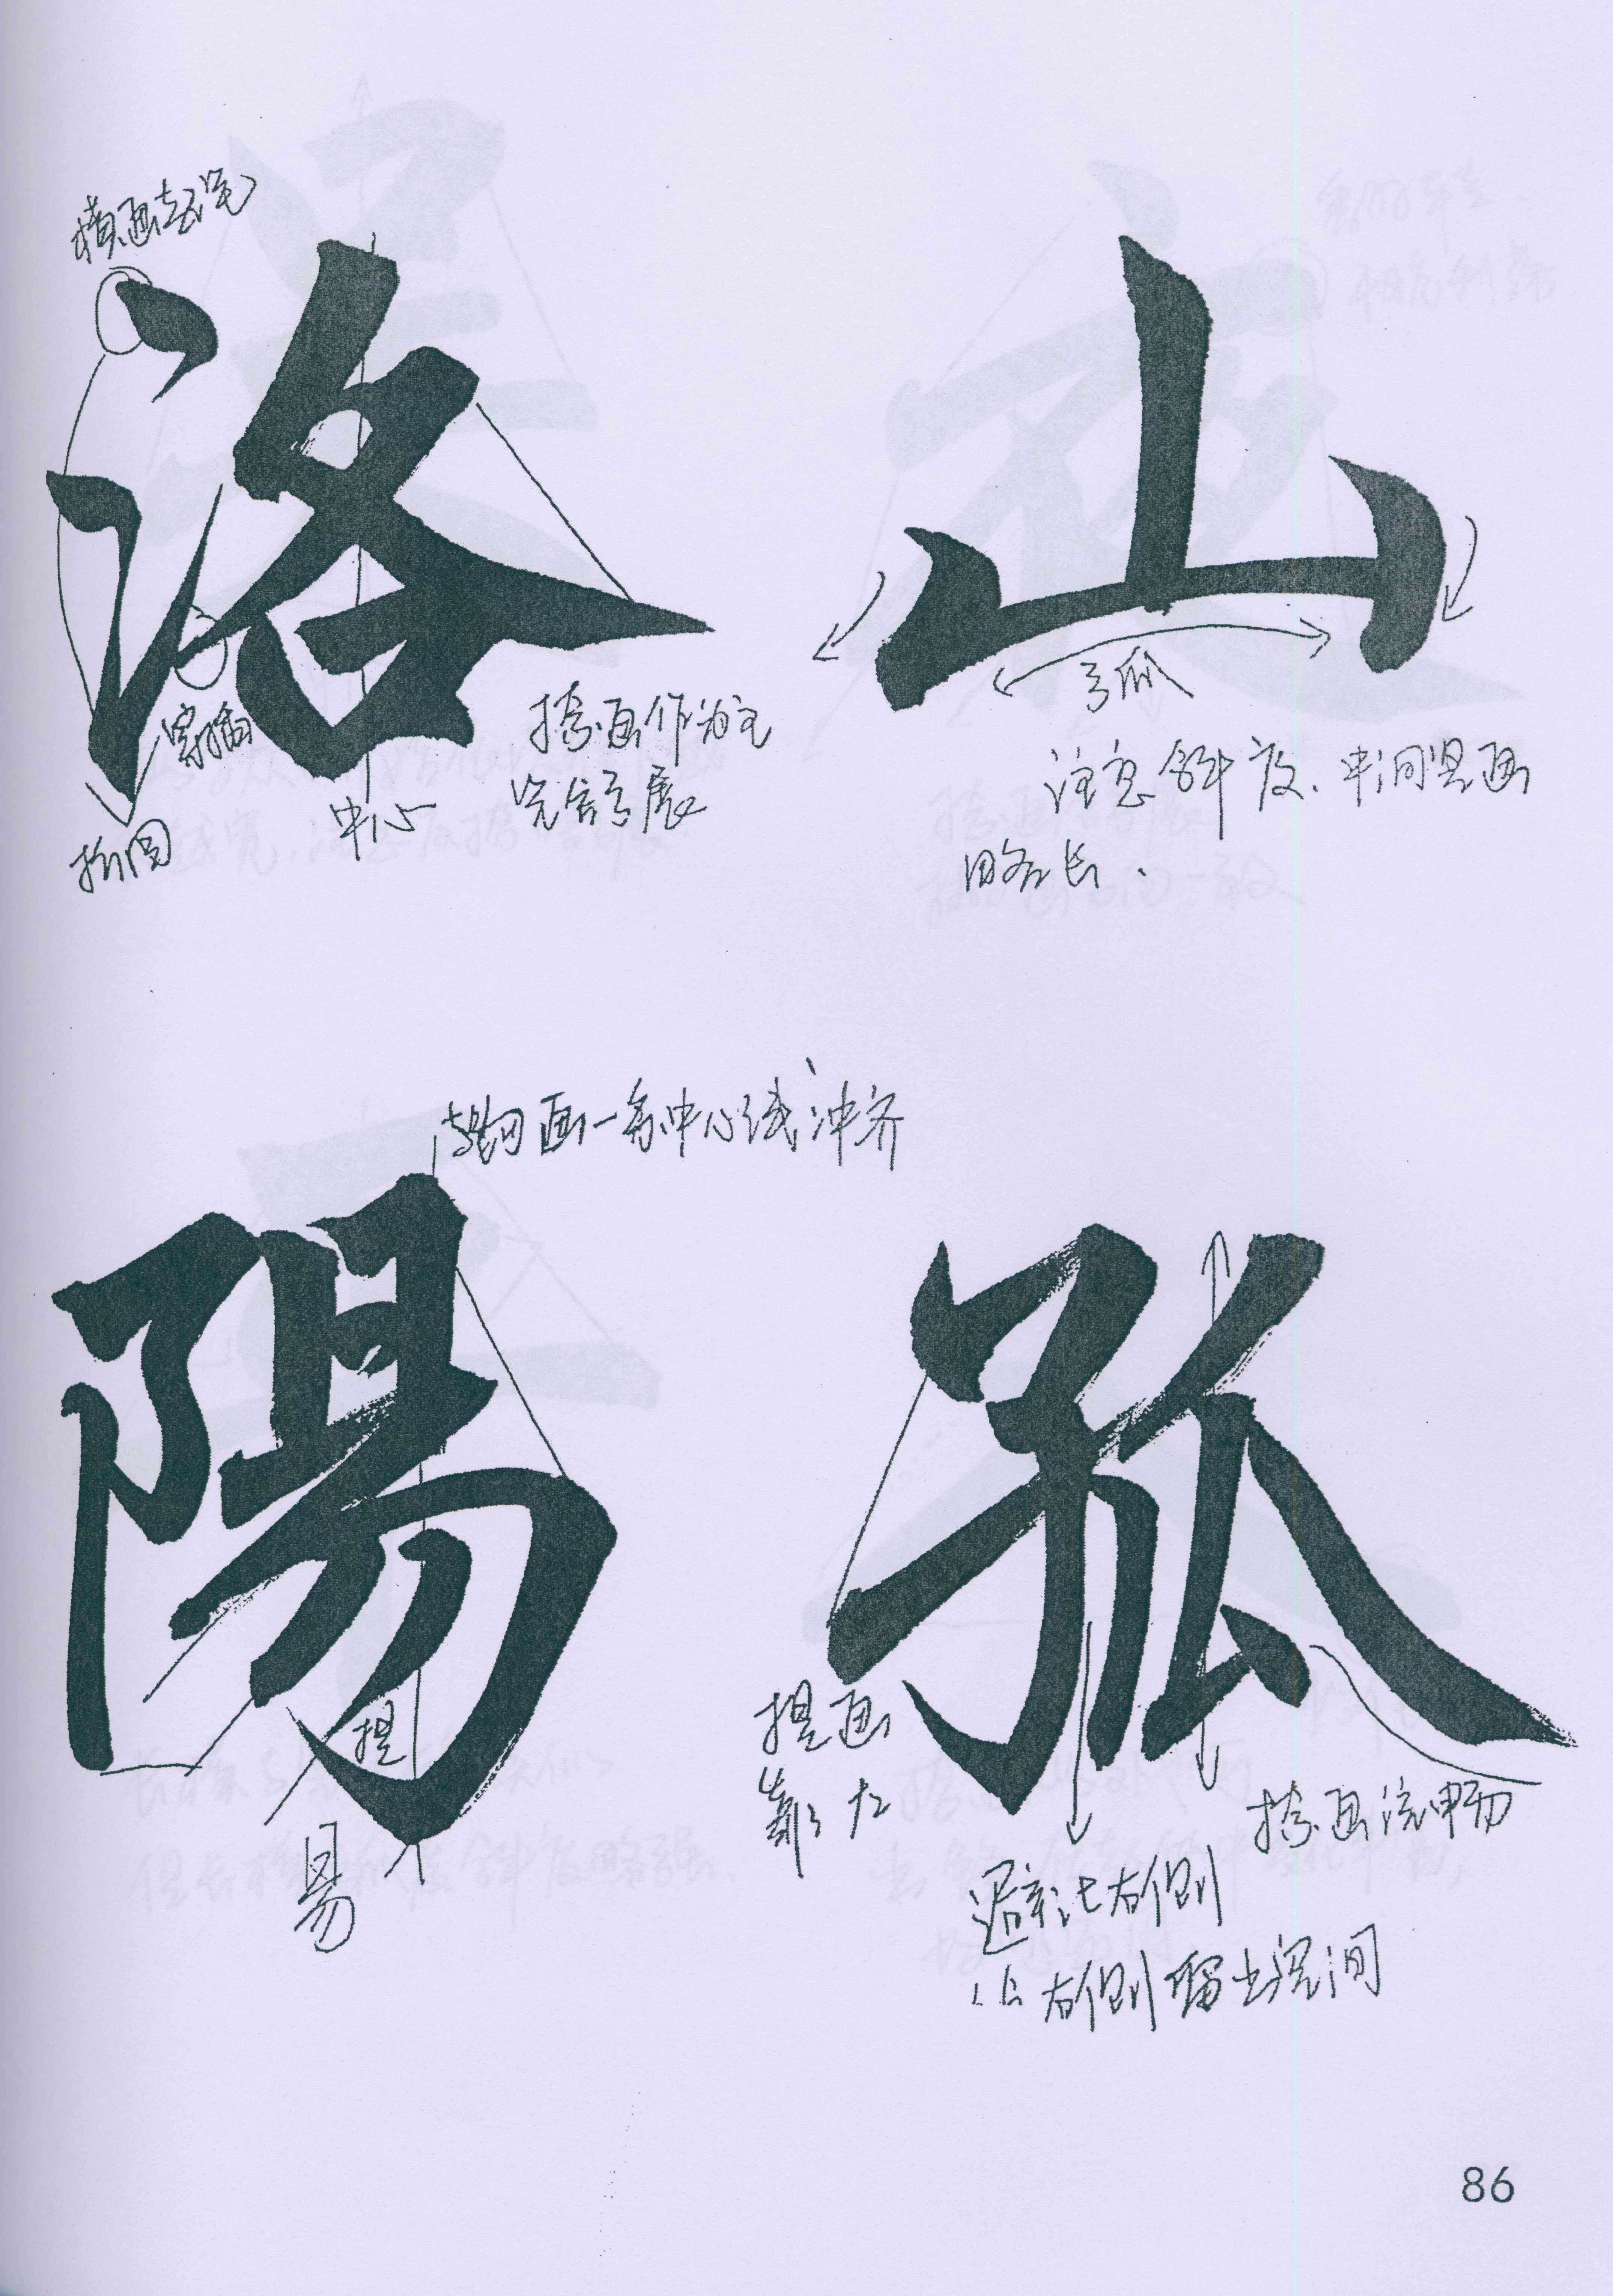 横画起笔
洛
穿插
折角
中心
捺画作为主
笔舒展
山
弓弧
注意斜度.中间竖画
略长.
钩画一务中心线冲齐
陽
提
易
孤
提画
靠左
捺画流畅
避让右侧
给右侧留出空间
86